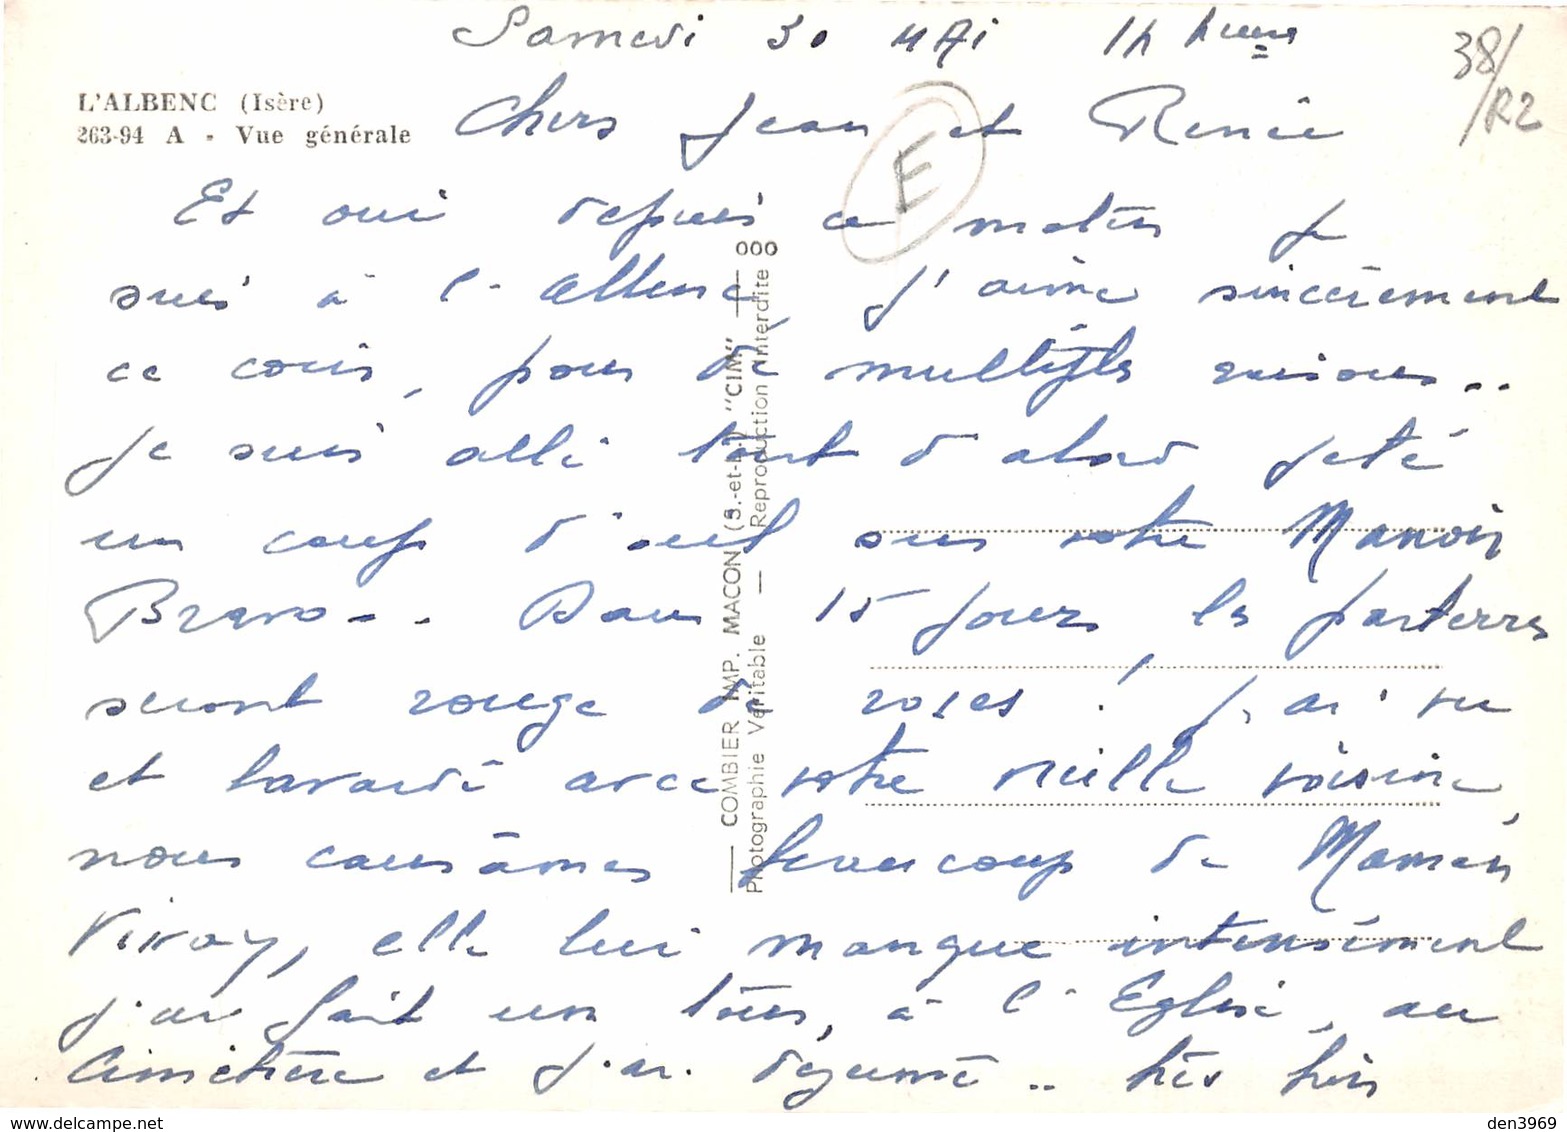 Samedi 30 MAI 14 heures
38/R2
L'ALBENC (Isère)
263-94 A - Vue générale
Chers Jean et Renée
E
Et oui depuis ce matin je
suis à l'Albenc, j'aime sincèrement
ce coin, pour de multiples raisons..
Je suis allé tout d'abord jeté
un coup d'oeil sur votre Manoir
Bravo-.. Dans 15 jours les parterres
seront rouge de roses ! j'ai vu
et bavardé avec votre vieille voisine,
nous causâmes beaucoup de Maman
Vivay, elle lui manque intensément
j'ai fait un tour, à l'Eglise, au
Cimetière et j'ai déjeuné .. très bien
COMBIER IMP. MACON (S.-et-L.) "CIM"
Photographie Véritable — Reproduction Interdite
www.delcampe.net
den3969